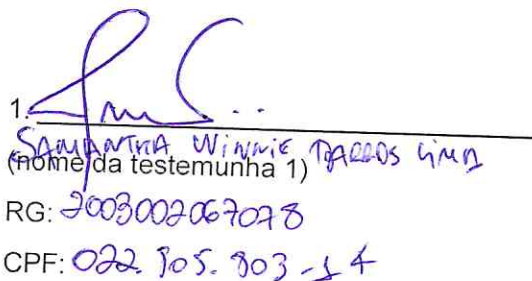 1.
SAMANTHA WINNIE BARROS LIMA
(nome da testemunha 1)
RG: 2003002067078
CPF: 022.905.803-14